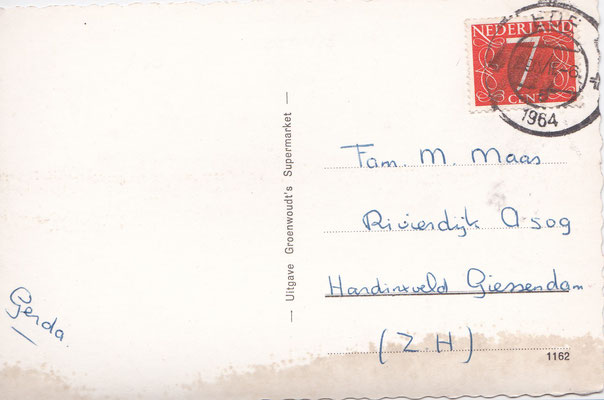 NEDERLAND
7
CENT
EDE
1964
Fam. M. Maas
Rivierdijk A 509
Hardinxveld Giessendam
(Z.H)
Gerda
— Uitgave Groenwoudt's Supermarket —
1162